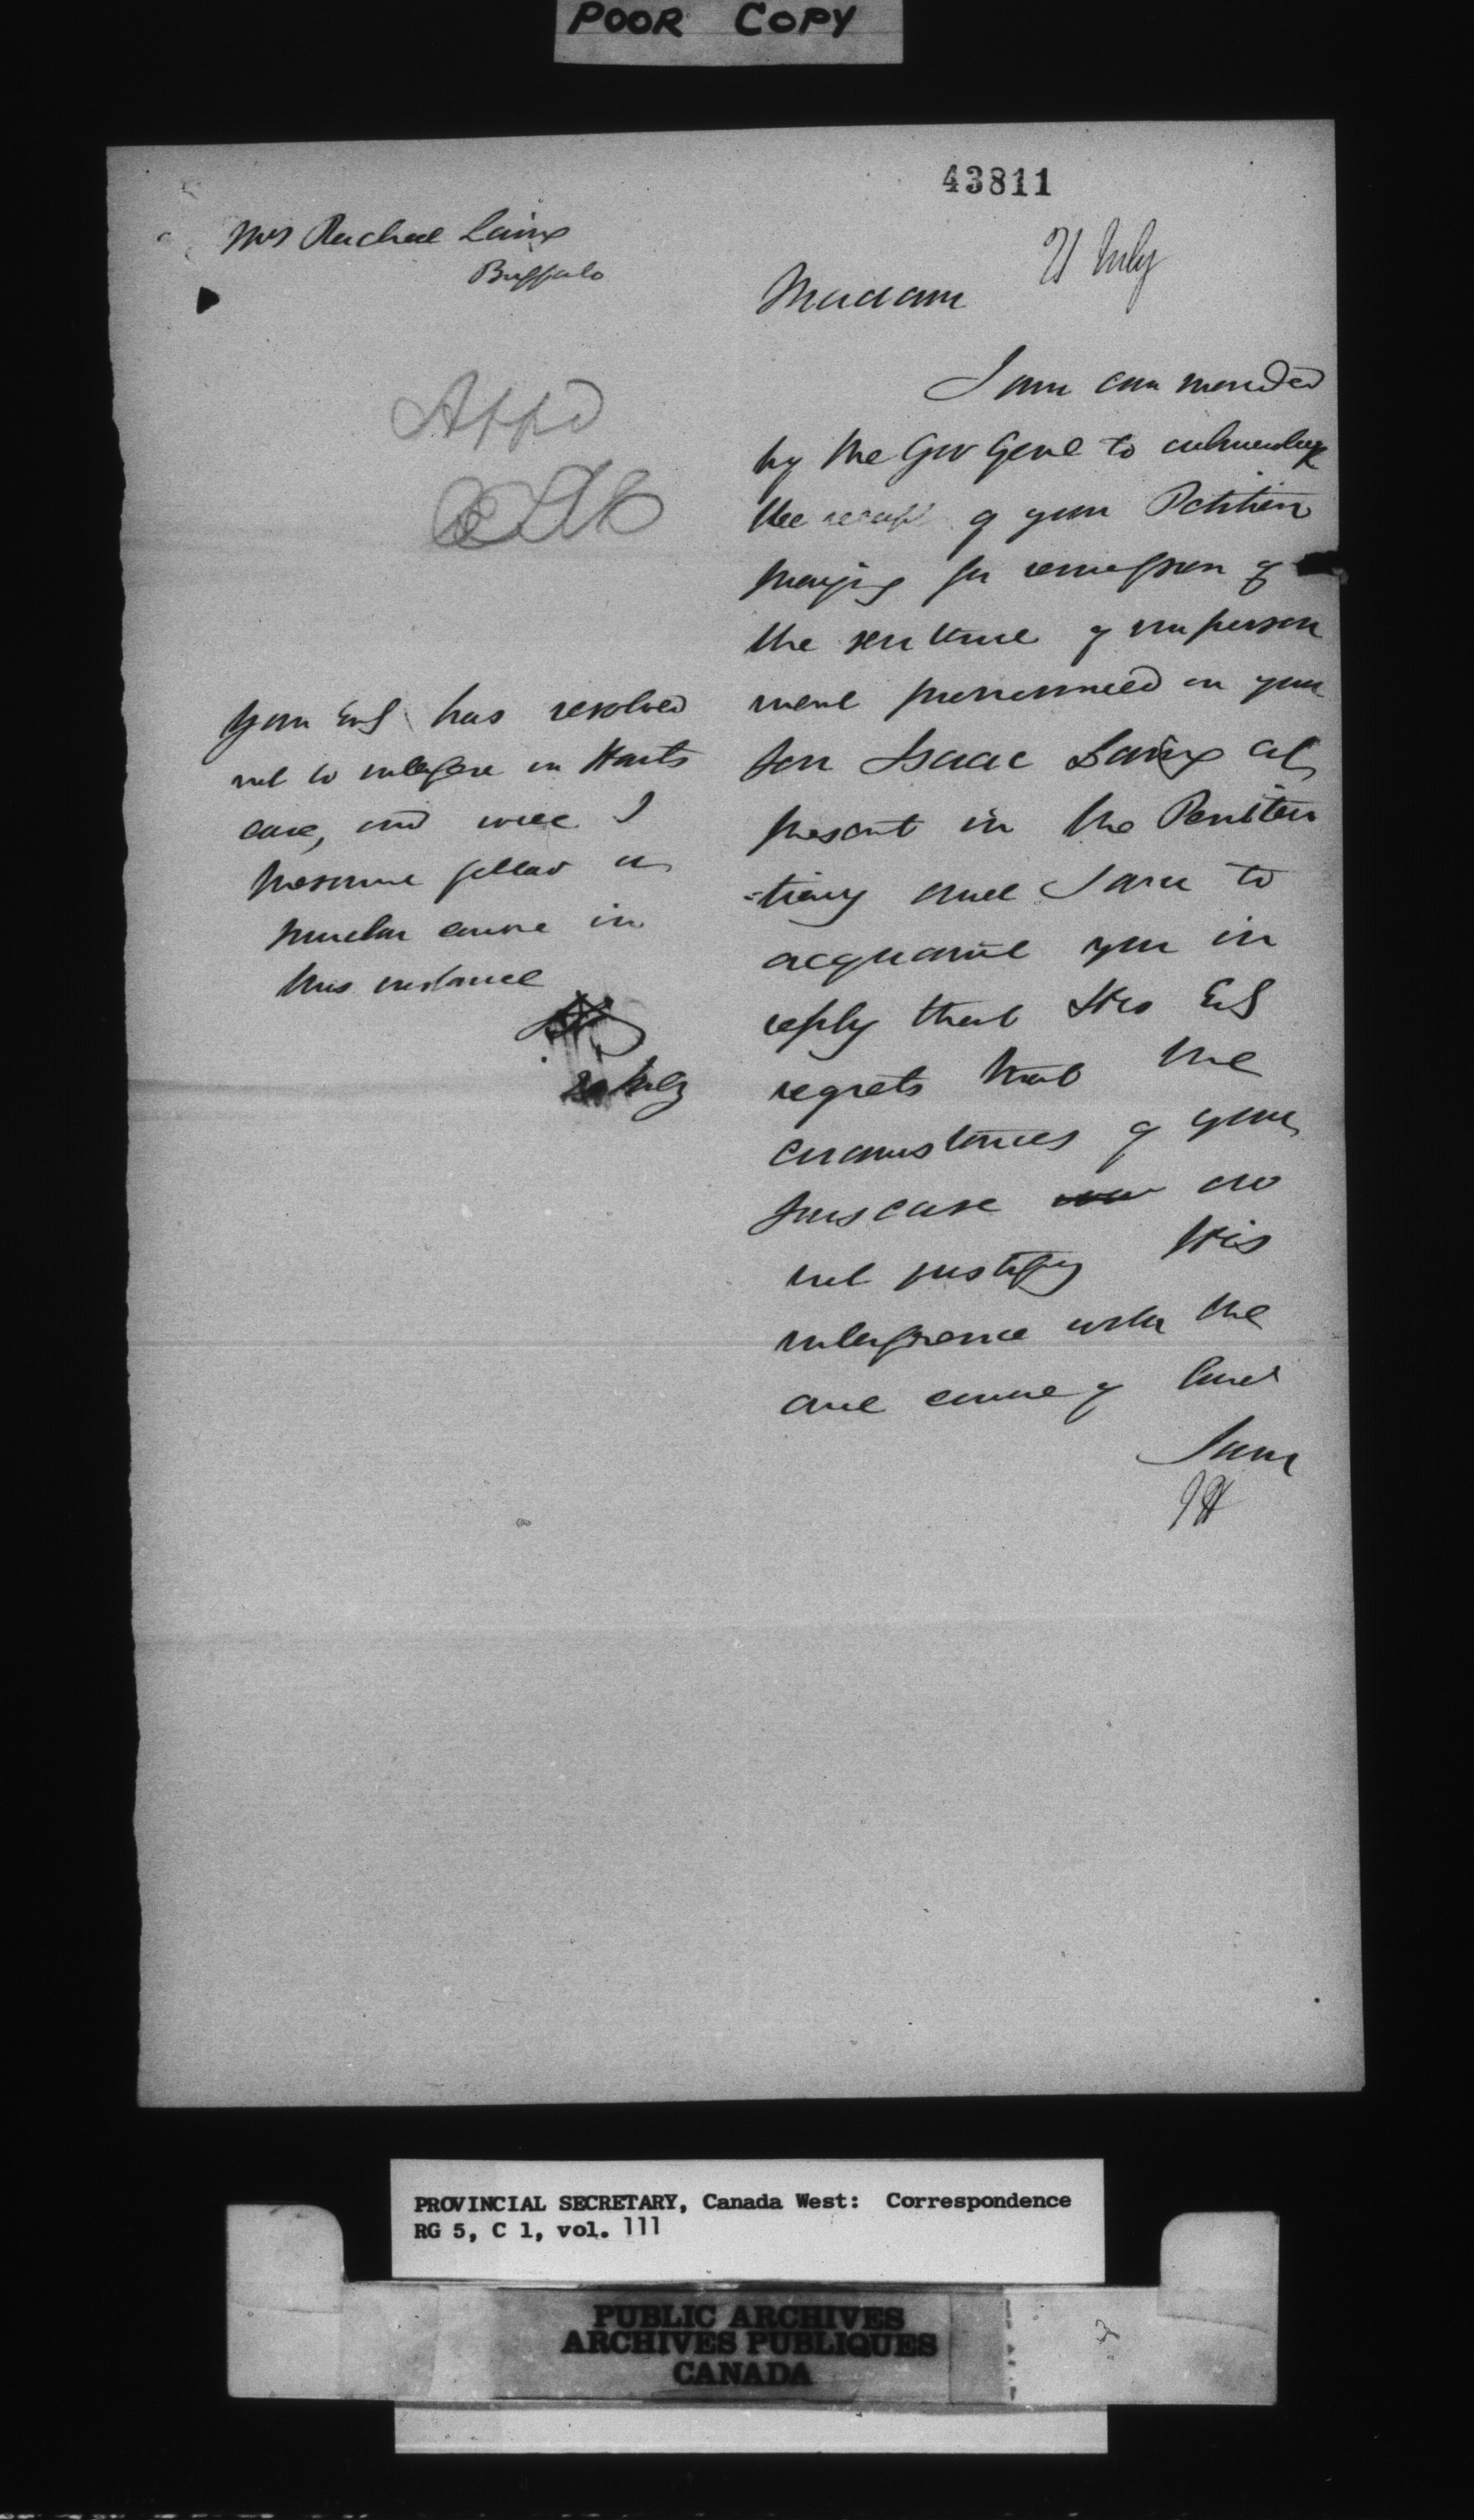 POOR COPY
43811
Mrs Rachael Laing
Buffalo
21 July
Madam
Appd
I am commanded
by the Gov Genl to acknowledge
the receipt of your Petition
praying for remission of
the sentence of imprison
ment pronounced on your
son Isaac Laing at
present in the Peniten
-tiary and I am to
acquaint you in
reply that His Exy
regrets that the
circumstances of your
sons case do
not justify His
interference with the
due course of law
I am
JH
Your Exy has resolved
not to interfere in Harts
case, and will I
presume follow a
similar course in
this instance
20 July
PROVINCIAL SECRETARY, Canada West: Correspondence
RG 5, C 1, vol. 111
PUBLIC ARCHIVES
ARCHIVES PUBLIQUES
CANADA